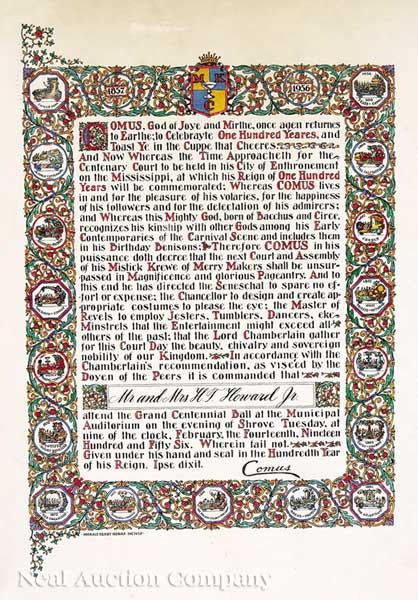 1857
1956
M K
S C
COMUS, God of Joye and Mirthe, once agen returnes
to Earthe; to Celebrayte One Hundred Yeares, and
Toast Ye in the Cuppe that Cheeres.
And Now Whereas the Time Approacheth for the
Centenary Court to be held in his City of Enthronement
on the Mississippi, at which his Reign of One Hundred
Years will be commemorated; Whereas COMUS lives
in and for the pleasure of his votaries, for the happiness
of his followers and for the delectation of his admirers;
and Whereas this Mighty God, born of Bacchus and Circe,
recognizes his kinship with other Gods among his Early
Contemporaries of the Carnival Scene and includes them
in his Birthday Benisons; Therefore COMUS in his
puissance doth decree that the next Court and Assembly
of his Mistick Krewe of Merry Makers shall be unsur-
passed in Magnificence and glorious Pageantry. And to
this end he has directed the Seneschal to spare no ef-
fort or expense; the Chancellor to design and create ap-
propriate costumes to please the eye; the Master of
Revels to employ Jesters, Tumblers, Dancers, eke
Minstrels that the Entertainment might exceed all
others of the past; that the Lord Chamberlain gather
for this Court Day the beauty, chivalry and sovereign
nobility of our Kingdom. In accordance with the
Chamberlain's recommendation, as viséed by the
Doyen of the Peers it is commanded that
Mr and Mrs H T Howard Jr
attend the Grand Centennial Ball at the Municipal
Auditorium on the evening of Shrove Tuesday, at
nine of the clock, February, the Fourteenth, Nineteen
Hundred and Fifty Six. Wherein fail not.
Given under his hand and seal in the Hundredth Year
of his Reign. Ipse dixit.
Comus
Neal Auction Company